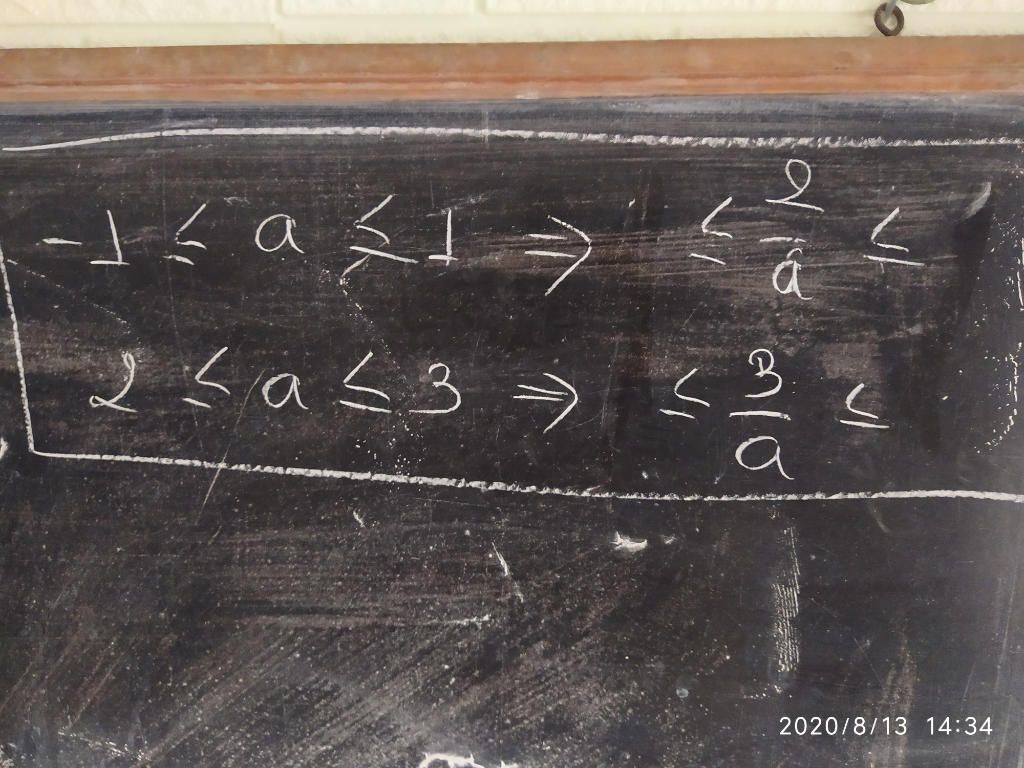 -1 ≤ a ≤ 1 ⇒ ≤ 2/a ≤
2 ≤ a ≤ 3 ⇒ ≤ 3/a ≤
2020/8/13 14:34